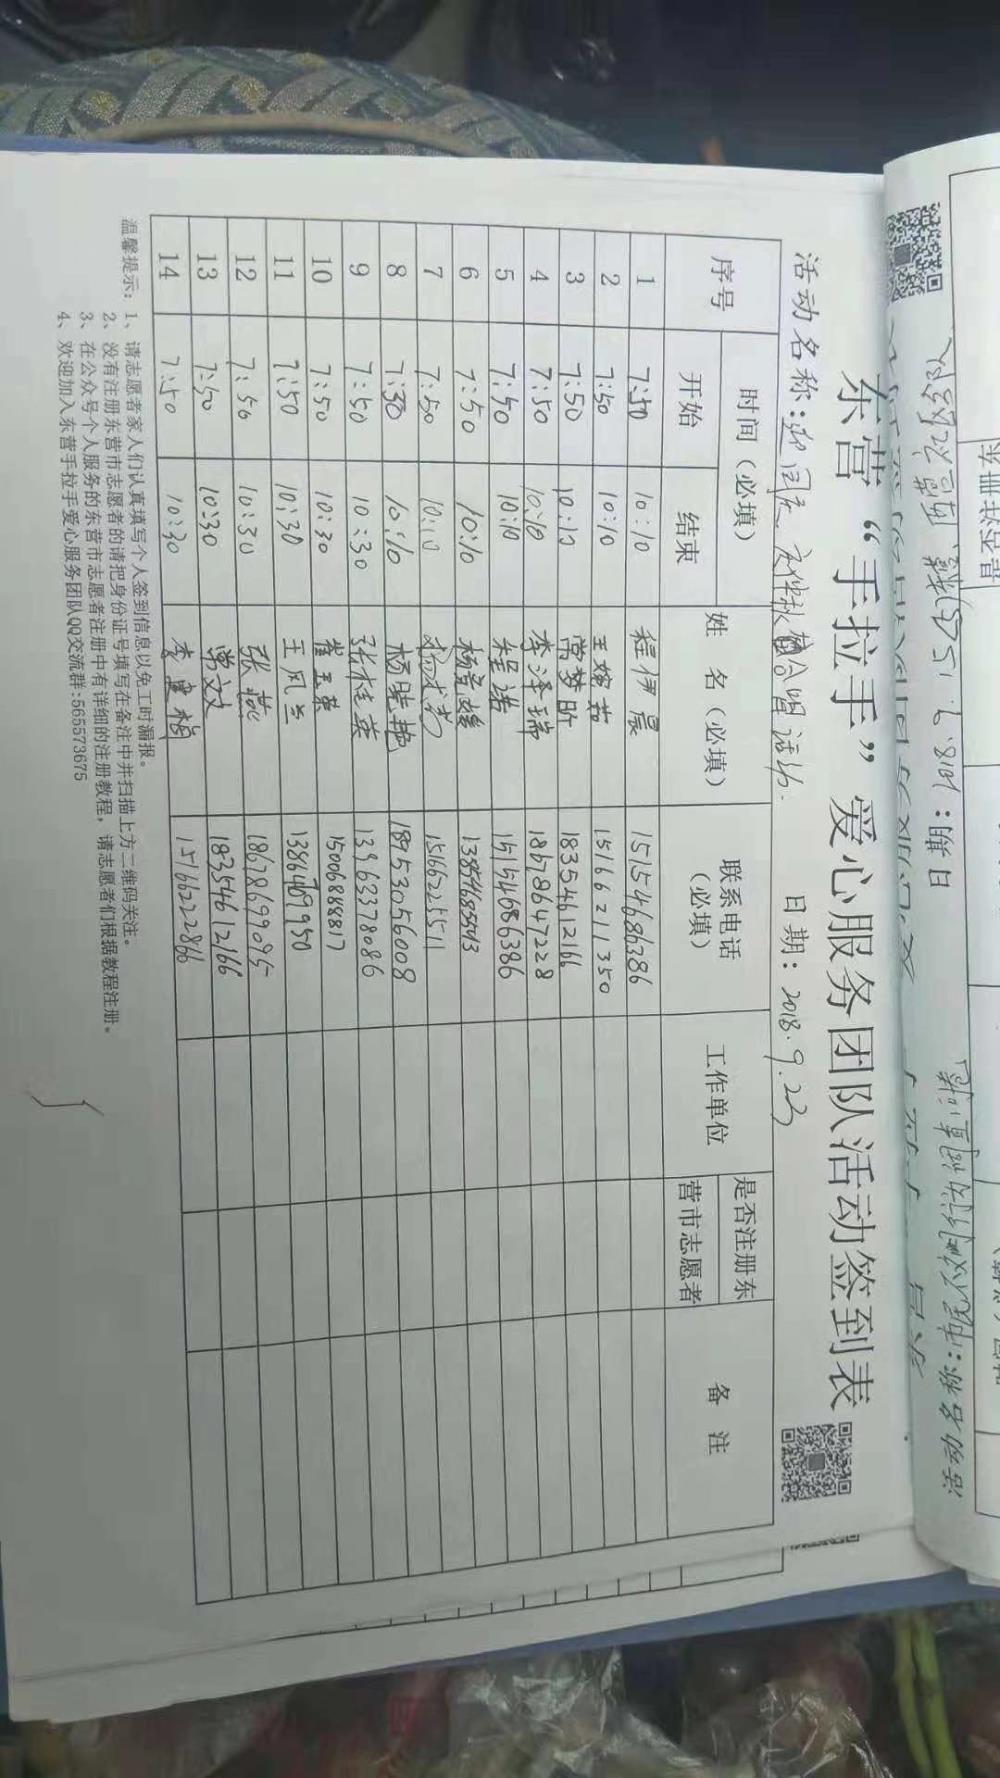 东营“手拉手”爱心服务团队活动签到表
活动名称：迎国庆 庆中秋 联合盟活动. 日期：2018.9.23
序号 时间（必填） 姓名（必填） 联系电话（必填） 工作单位 是否注册东营市志愿者 备注
开始 结束
1 7:50 10:10 程伊晨 15154686386
2 7:50 10:10 王婉茹 15166211350
3 7:50 10:10 常梦昕 18354612166
4 7:50 10:10 李泽瑞 18678647228
5 7:50 10:10 程诺 15154686386
6 7:50 10:10 13854685543
7 7:50 10:10 15166225511
8 7:30 10:10 杨晓艳 18953056008
9 7:50 10:30 张桂英 13963378086
10 7:50 10:30 崔玉荣 15006888817
11 7:50 10:30 王凤兰
12 7:50 10:30 张燕 18678699095
13 7:50 10:30 常文文 18354612166
14 7:50 10:30 李建梅 15166222866
温馨提示：1、请志愿者家人们认真填写个人签到信息以免工时漏报。
2、没有注册东营市志愿者的请把身份证号填写在备注中并扫描上方二维码关注。
3、在公众号个人服务的东营市志愿者注册中有详细的注册教程，请志愿者们根据教程注册。
4、欢迎加入东营手拉手爱心服务团队QQ交流群：565573675
活动名称：
日期：2018.6.15
是否注册东